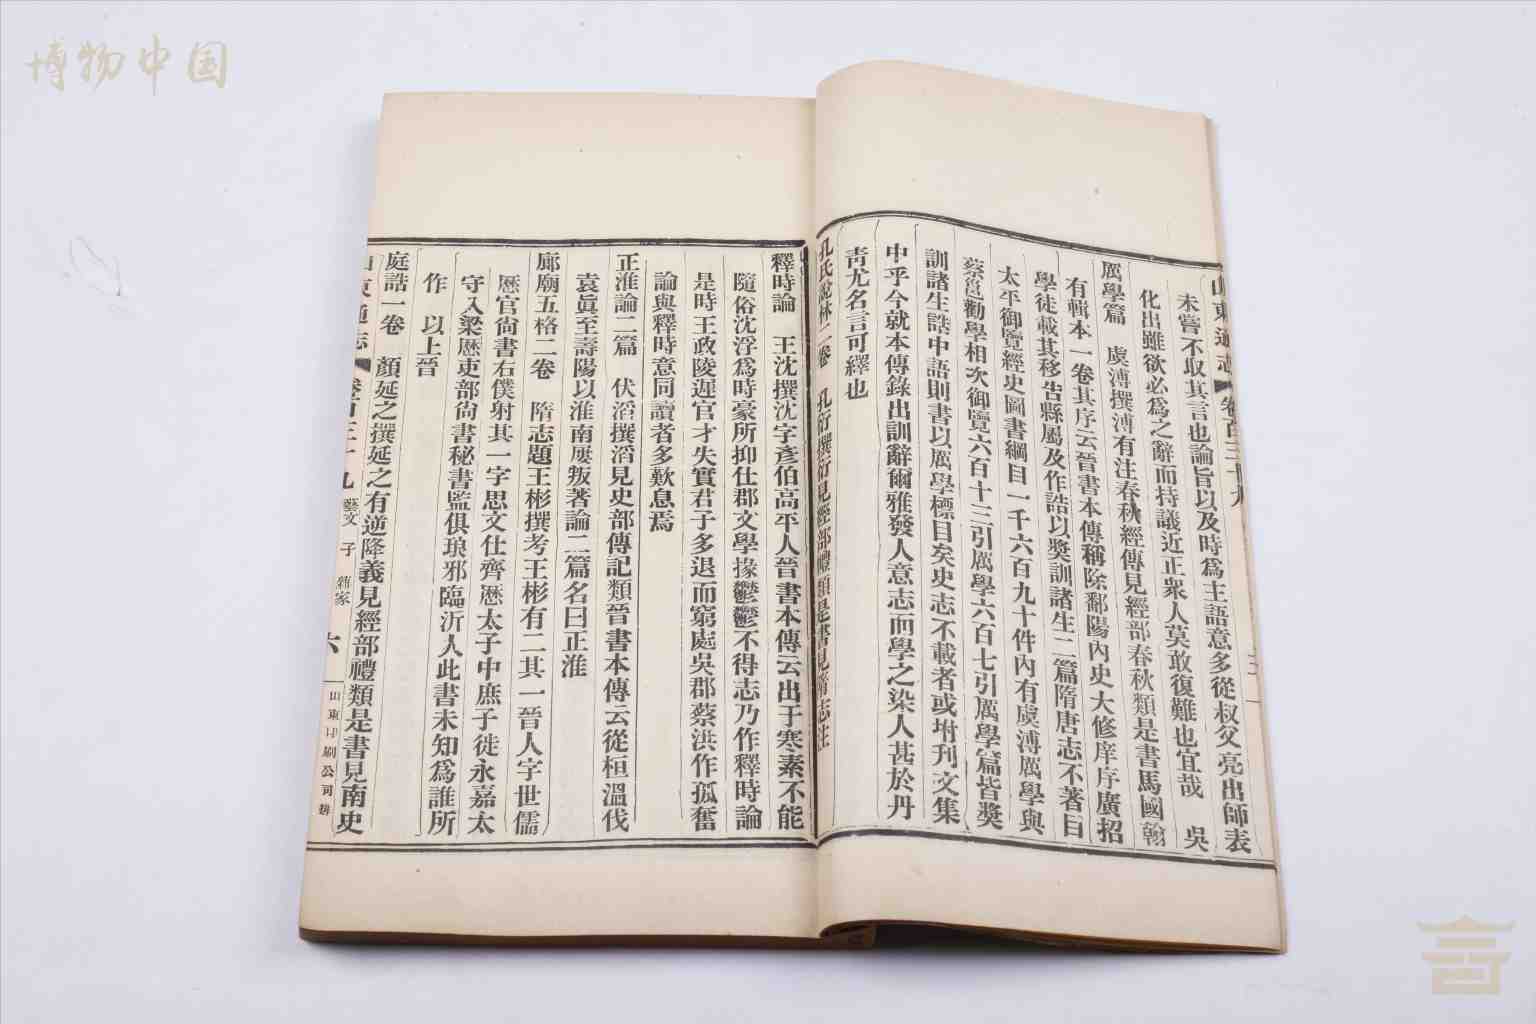 博物中国
山東通志 卷百三十九
未嘗不取其言也論旨以及時爲主語意多從叔父亮出師表
化出雖欲必爲之辭而持議近正衆人莫敢復難也宜哉 吳
厲學篇 虞溥撰溥有注春秋經傳見經部春秋類是書馬國翰
有輯本一卷其序云晉書本傳稱除鄱陽內史大修庠序廣招
學徒載其移告縣屬及作誥以奬訓諸生二篇隋唐志不著目
太平御覽經史圖書綱目一千六百九十件內有虞溥厲學與
蔡邕勸學相次御覽六百十三引厲學六百七引厲學篇皆奬
訓諸生誥中語則書以厲學標目矣史志不載者或坿刊文集
中乎今就本傳錄出訓辭爾雅發人意志而學之染人甚於丹
靑尤名言可繹也
孔氏說林二卷 孔衍撰衍見經部禮類是書見隋志注
釋時論 王沈撰沈字彥伯高平人晉書本傳云出于寒素不能
隨俗沈浮爲時豪所抑仕郡文學掾鬱鬱不得志乃作釋時論
是時王政陵遲官才失實君子多退而窮處吳郡蔡洪作孤奮
論與釋時意同讀者多歎息焉
正淮論二篇 伏滔撰滔見史部傳記類晉書本傳云從桓溫伐
袁眞至壽陽以淮南屢叛著論二篇名曰正淮
廊廟五格二卷 隋志題王彬撰考王彬有二其一晉人字世儒
歷官尙書右僕射其一字思文仕齊歷太子中庶子徙永嘉太
守入梁歷吏部尙書秘書監俱琅邪臨沂人此書未知爲誰所
作 以上晉
庭誥一卷 顏延之撰延之有逆降義見經部禮類是書見南史
山東通志 卷百三十九 藝文 子 雜家 六 山東印刷公司